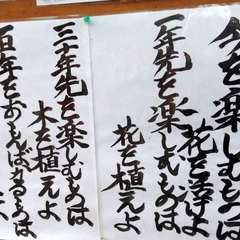 今を楽しむものは
花を活けよ
一年先を楽しむものは
花を植えよ
三十年先を楽しむものは
木を植えよ
百年をおもんばかるものは